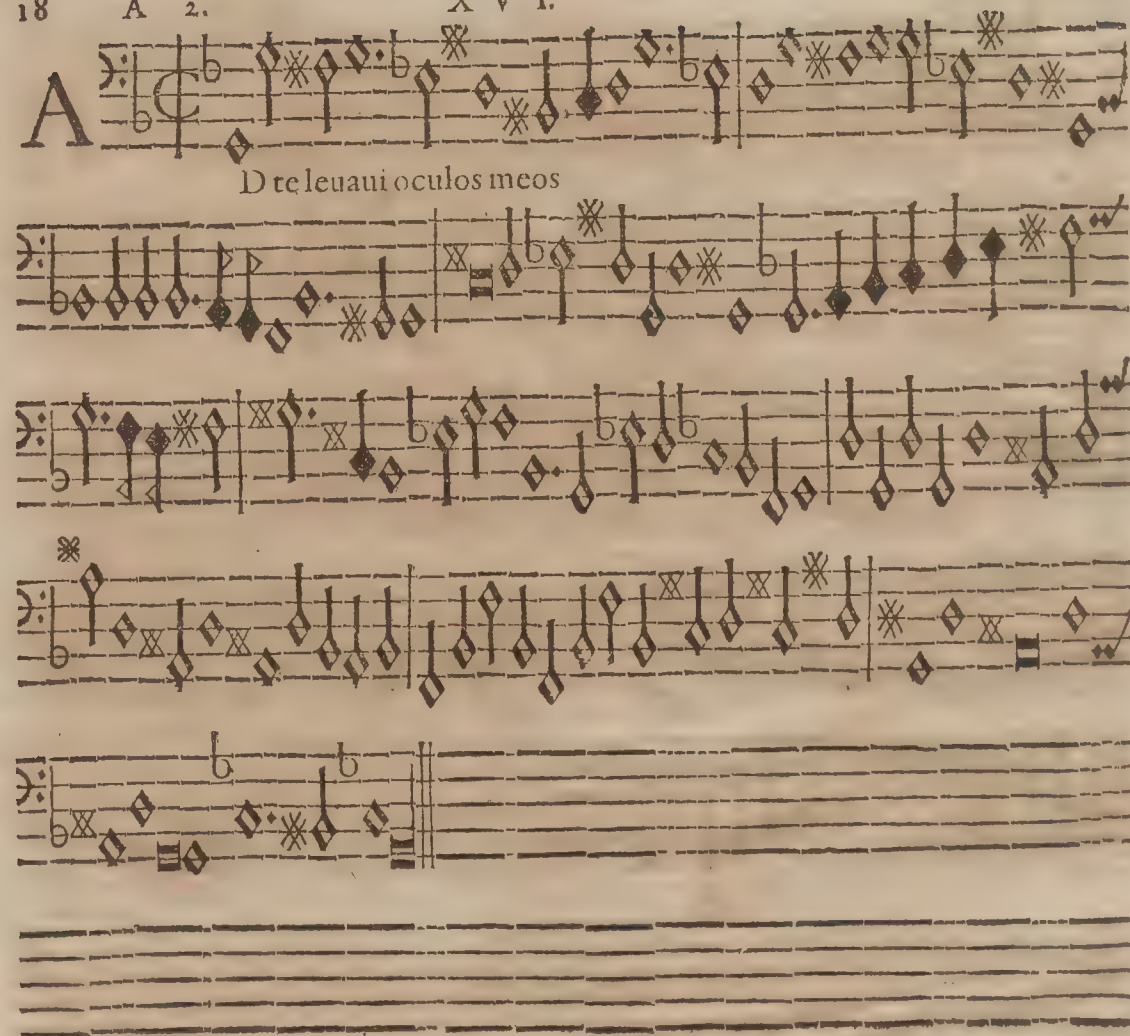 18 A 2. X V I.
AD te leuaui oculos meos